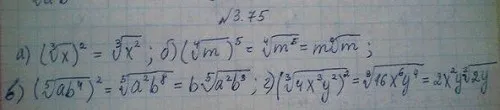 №3.75
а) (∛x)² = ∛x²; б) (∜m)⁵ = ∜m⁵ = m∜m;
в) (⁵√ab⁴)² = ⁵√a²b⁸ = b⁵√a²b³; г) (∛4x³y²)² = ∛16x⁶y⁴ = 2x²y∛2y